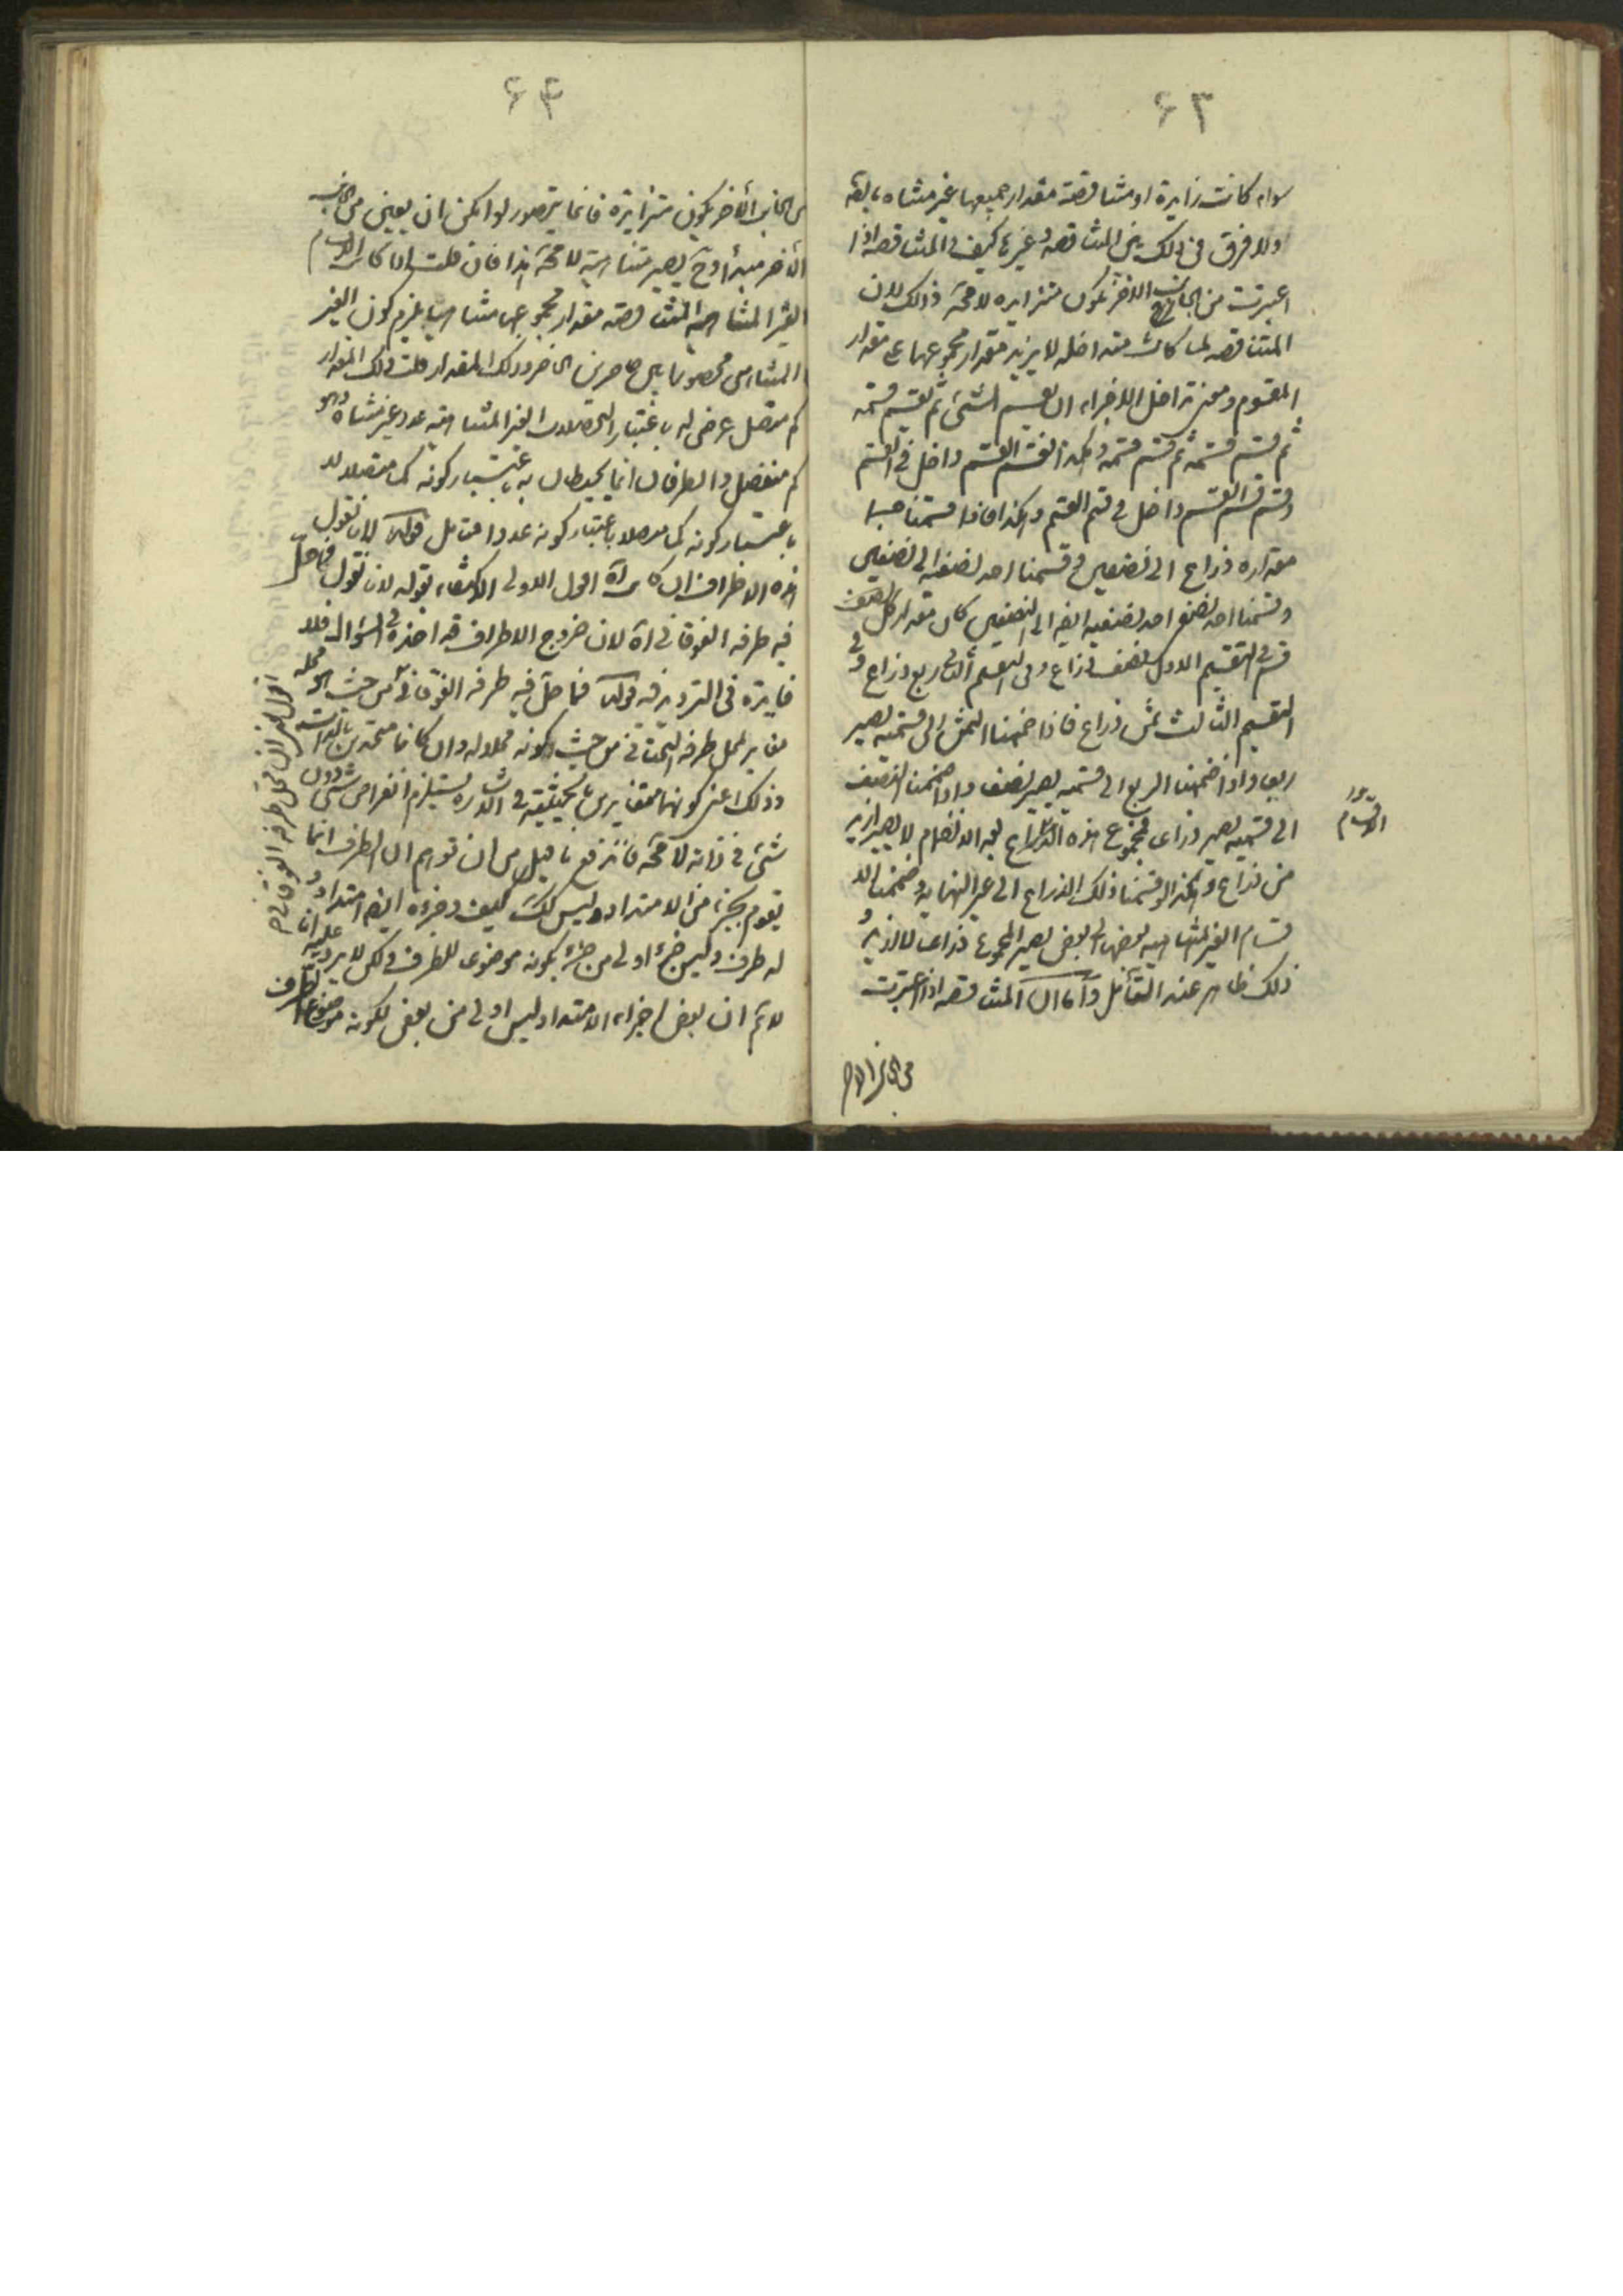 ۶۳
سواء كانت زايدة او متناقصة مقدار جميعها غير متناه بالفعل
ولا فرق فى ذلك بين المتناقصه وغيرها كيف والمتناقصه اذا
اعتبرت من الجانب الاخر تكون متزايده لا محة ذلك لان
المتناقصه لما كانت متداخله لا يزيد مقدار مجموعها على مقدار
المقسوم ومعنى تداخل الاجزاء ان يقسم الشئ ثم يقسم قسمه
ثم قسم قسمه ثم قسم قسمه وهكذا فقسم القسم داخل فى القسم
وقسم قسم القسم داخل فى قسم القسم وهكذا فاذا قسمنا جسما
مقداره ذراع الى نصفين وقسمنا احد نصفيه الى نصفين
وقسمنا احد نصفى احد نصفيه ايضا الى النصفين كان مقدار كل
قسم فى التقسيم الاول نصف ذراع وفى التقسيم الثانى ربع ذراع وفى
التقسيم الثالث ثمن ذراع فاذا ضممنا الثمن الى قسميه يصير
ربعا واذا ضممنا الربع الى قسميه يصير نصفا واذا ضممنا النصف
الى قسميه يصير ذراعا فمجموع هذه الاقسام بعد الانضمام لا يصير ازيد
من ذراع وهكذا لو قسمنا ذلك الذراع الى غير النهايه وضممنا الا
قسام الغير المتناهيه بعضها الى بعض يصير المجموع ذراعا لا ازيد و
ذلك ظاهر عند التأمل واما ان المتناقصه اذا اعتبرت
من الجانب الاخر
الاقسام
۶۴
من الجانب الأخر يكون متزايدة فانما يتصور لو امكن ان يعين من الجانب
الأخر مبدأ وح يصير متناهية لا محة هذا فان قلت اذا كان الاقسام
الغير المتناهيه المتناقصه مقدار مجموعها متناهيا يلزم كون الغير
المتناهى محصورا بين حاصرين الحاضر وذلك المقدار قلت ذلك المقدار
كم متصل عرض له باعتبار الغير المتناهيه عدد غير متناه وهو
كم منفصل والطرفان انما يحيطان به باعتبار كونه كما متصلا لا
باعتبار كونه كما منفصلا باعتبار كونه عددا فتامل قوله لانا نقول
هذه الاطراف ان كانت آه اقول الاولى الاكتفاء بقوله لانا نقول فما حل
فيه طرفه الفوقانى آه لان خروج الاطراف قد اخذه فى السؤال فلا
فايدة فى الترديد فيه قوله فما حل فيه طرفه الفوقانى من حيث هو محله
مغاير لمحل طرفه التحتانى من حيث كونه محلا له وان كانا متحدين بالذات
وذلك اعنى كونهما متغايرين بالحيثية فى الاشاره يستلزم انفراض شئ دون
شئ فى ذاته لا محة فاندفع ما قيل من ان توهم ان الطرف انما
يقوم بجزء من الامتداد وليس كك كيف وجزءه ايضا امتداد و
له طرف وليس جزء اولى من جزء بكونه موضوعا للطرف ولكن لا يرد عليه انا
لا نم ان بعض اجزاء الامتداد ليس اولى من بعض لكونه موضوعا للطرف